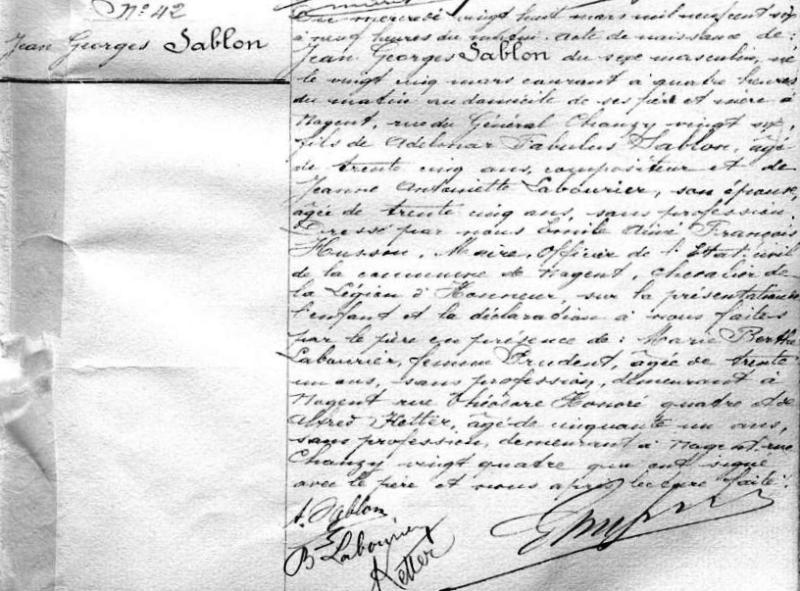 N° 42
Jean Georges Sablon
mercredi vingt huit mars mil neuf cent six
à neuf heures du matin. Acte de naissance de :
Jean Georges Sablon du sexe masculin, né
le vingt cinq mars courant à quatre heures
du matin au domicile de ses père et mère à
Nogent, rue du Général Chanzy vingt six,
fils de Adelmar Fabulus Sablon, âgé
de trente cinq ans, compositeur et de
Jeanne Antoinette Labourier, son épouse,
âgée de trente cinq ans, sans profession.
Dressé par nous Emile Aimé François
Husson, Maire, Officier de l'Etat civil
de la commune de Nogent, Chevalier de
la Légion d'Honneur, sur la présentation de
l'enfant et la déclaration à nous faites
par le père en présence de : Marie Berthe
Labourier, femme Prudent, âgée de trente
un ans, sans profession, demeurant à
Nogent rue Théodore Honoré quatre et de
Alfred Hetter, âgé de cinquante un ans,
sans profession, demeurant à Nogent, rue
Chanzy vingt quatre qui ont signé
avec le père et nous après lecture faite.
A. Sablon
Bᵉ Labourier
Hetter